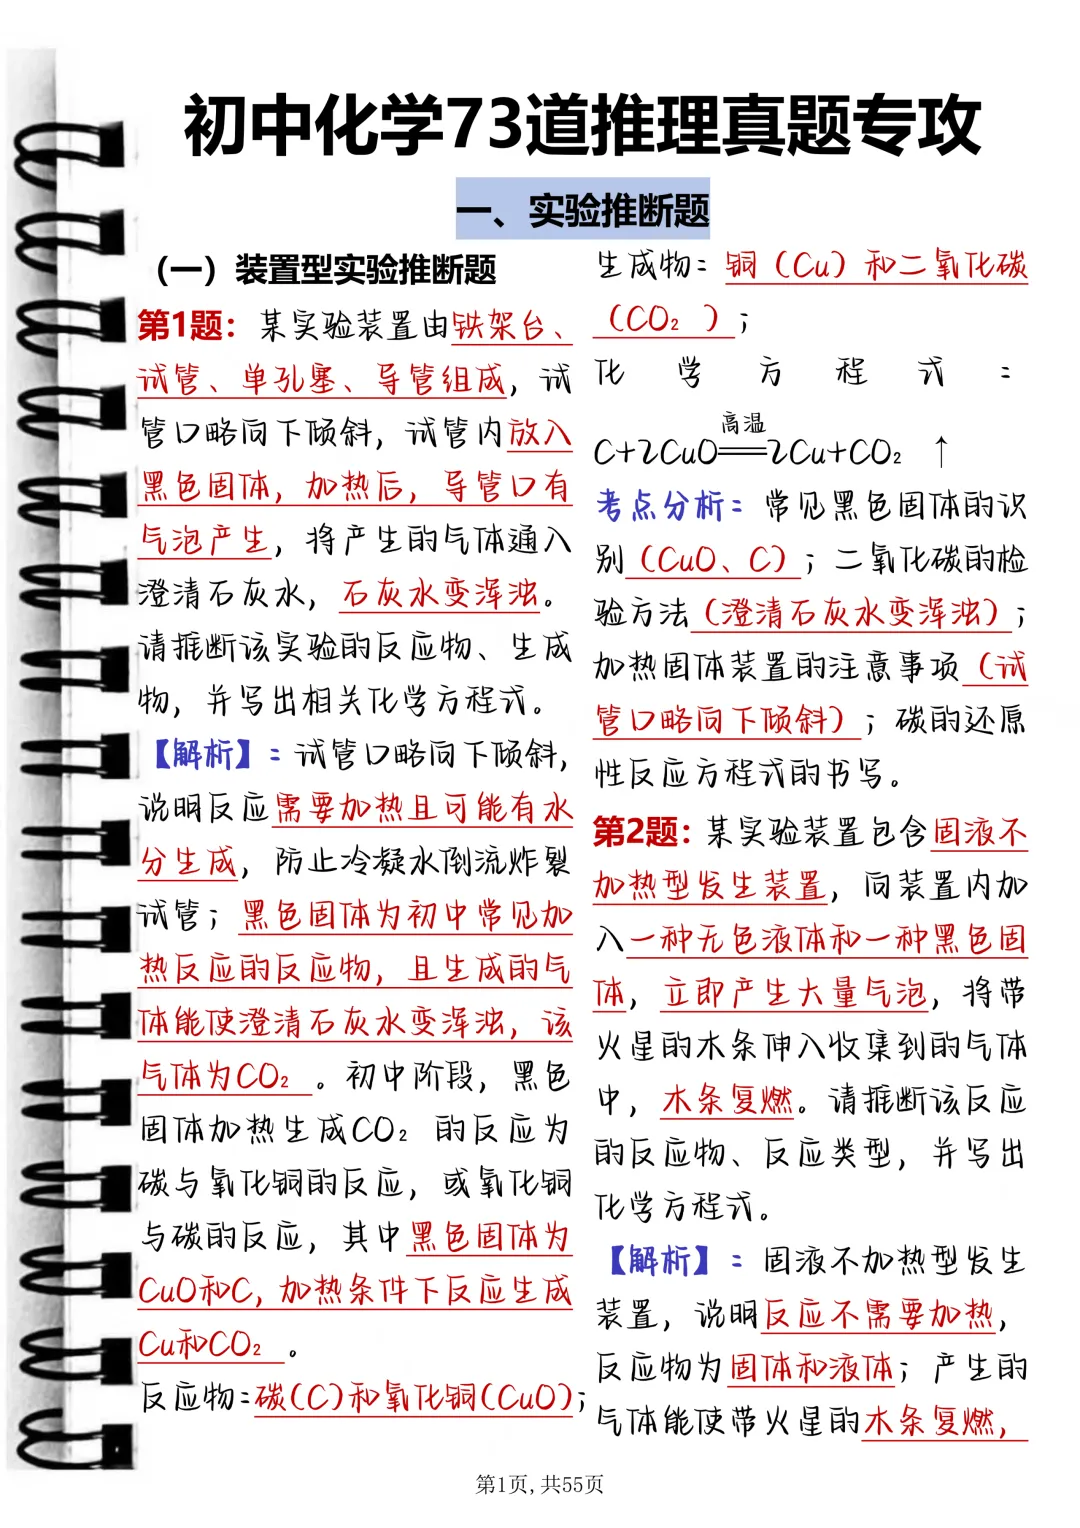 初中化学73道推理真题专攻
一、实验推断题
（一）装置型实验推断题
第1题：某实验装置由铁架台、
试管、单孔塞、导管组成，试
管口略向下倾斜，试管内放入
黑色固体，加热后，导管口有
气泡产生，将产生的气体通入
澄清石灰水，石灰水变浑浊。
请推断该实验的反应物、生成
物，并写出相关化学方程式。
【解析】：试管口略向下倾斜，
说明反应需要加热且可能有水
分生成，防止冷凝水倒流炸裂
试管；黑色固体为初中常见加
热反应的反应物，且生成的气
体能使澄清石灰水变浑浊，该
气体为CO₂。初中阶段，黑色
固体加热生成CO₂的反应为
碳与氧化铜的反应，或氧化铜
与碳的反应，其中黑色固体为
CuO和C，加热条件下反应生成
Cu和CO₂。
反应物：碳(C)和氧化铜(CuO)；
生成物：铜（Cu）和二氧化碳
（CO₂）；
化学方程式：
高温
C+2CuO══2Cu+CO₂ ↑
考点分析：常见黑色固体的识
别（CuO、C）；二氧化碳的检
验方法（澄清石灰水变浑浊）；
加热固体装置的注意事项（试
管口略向下倾斜）；碳的还原
性反应方程式的书写。
第2题：某实验装置包含固液不
加热型发生装置，向装置内加
入一种无色液体和一种黑色固
体，立即产生大量气泡，将带
火星的木条伸入收集到的气体
中，木条复燃。请推断该反应
的反应物、反应类型，并写出
化学方程式。
【解析】：固液不加热型发生
装置，说明反应不需要加热，
反应物为固体和液体；产生的
气体能使带火星的木条复燃，
第1页，共55页